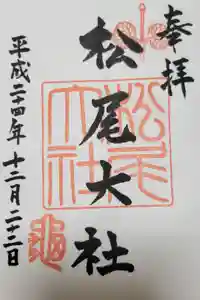 奉拝
松尾大社
松尾大社
平成二十四年十二月二十三日